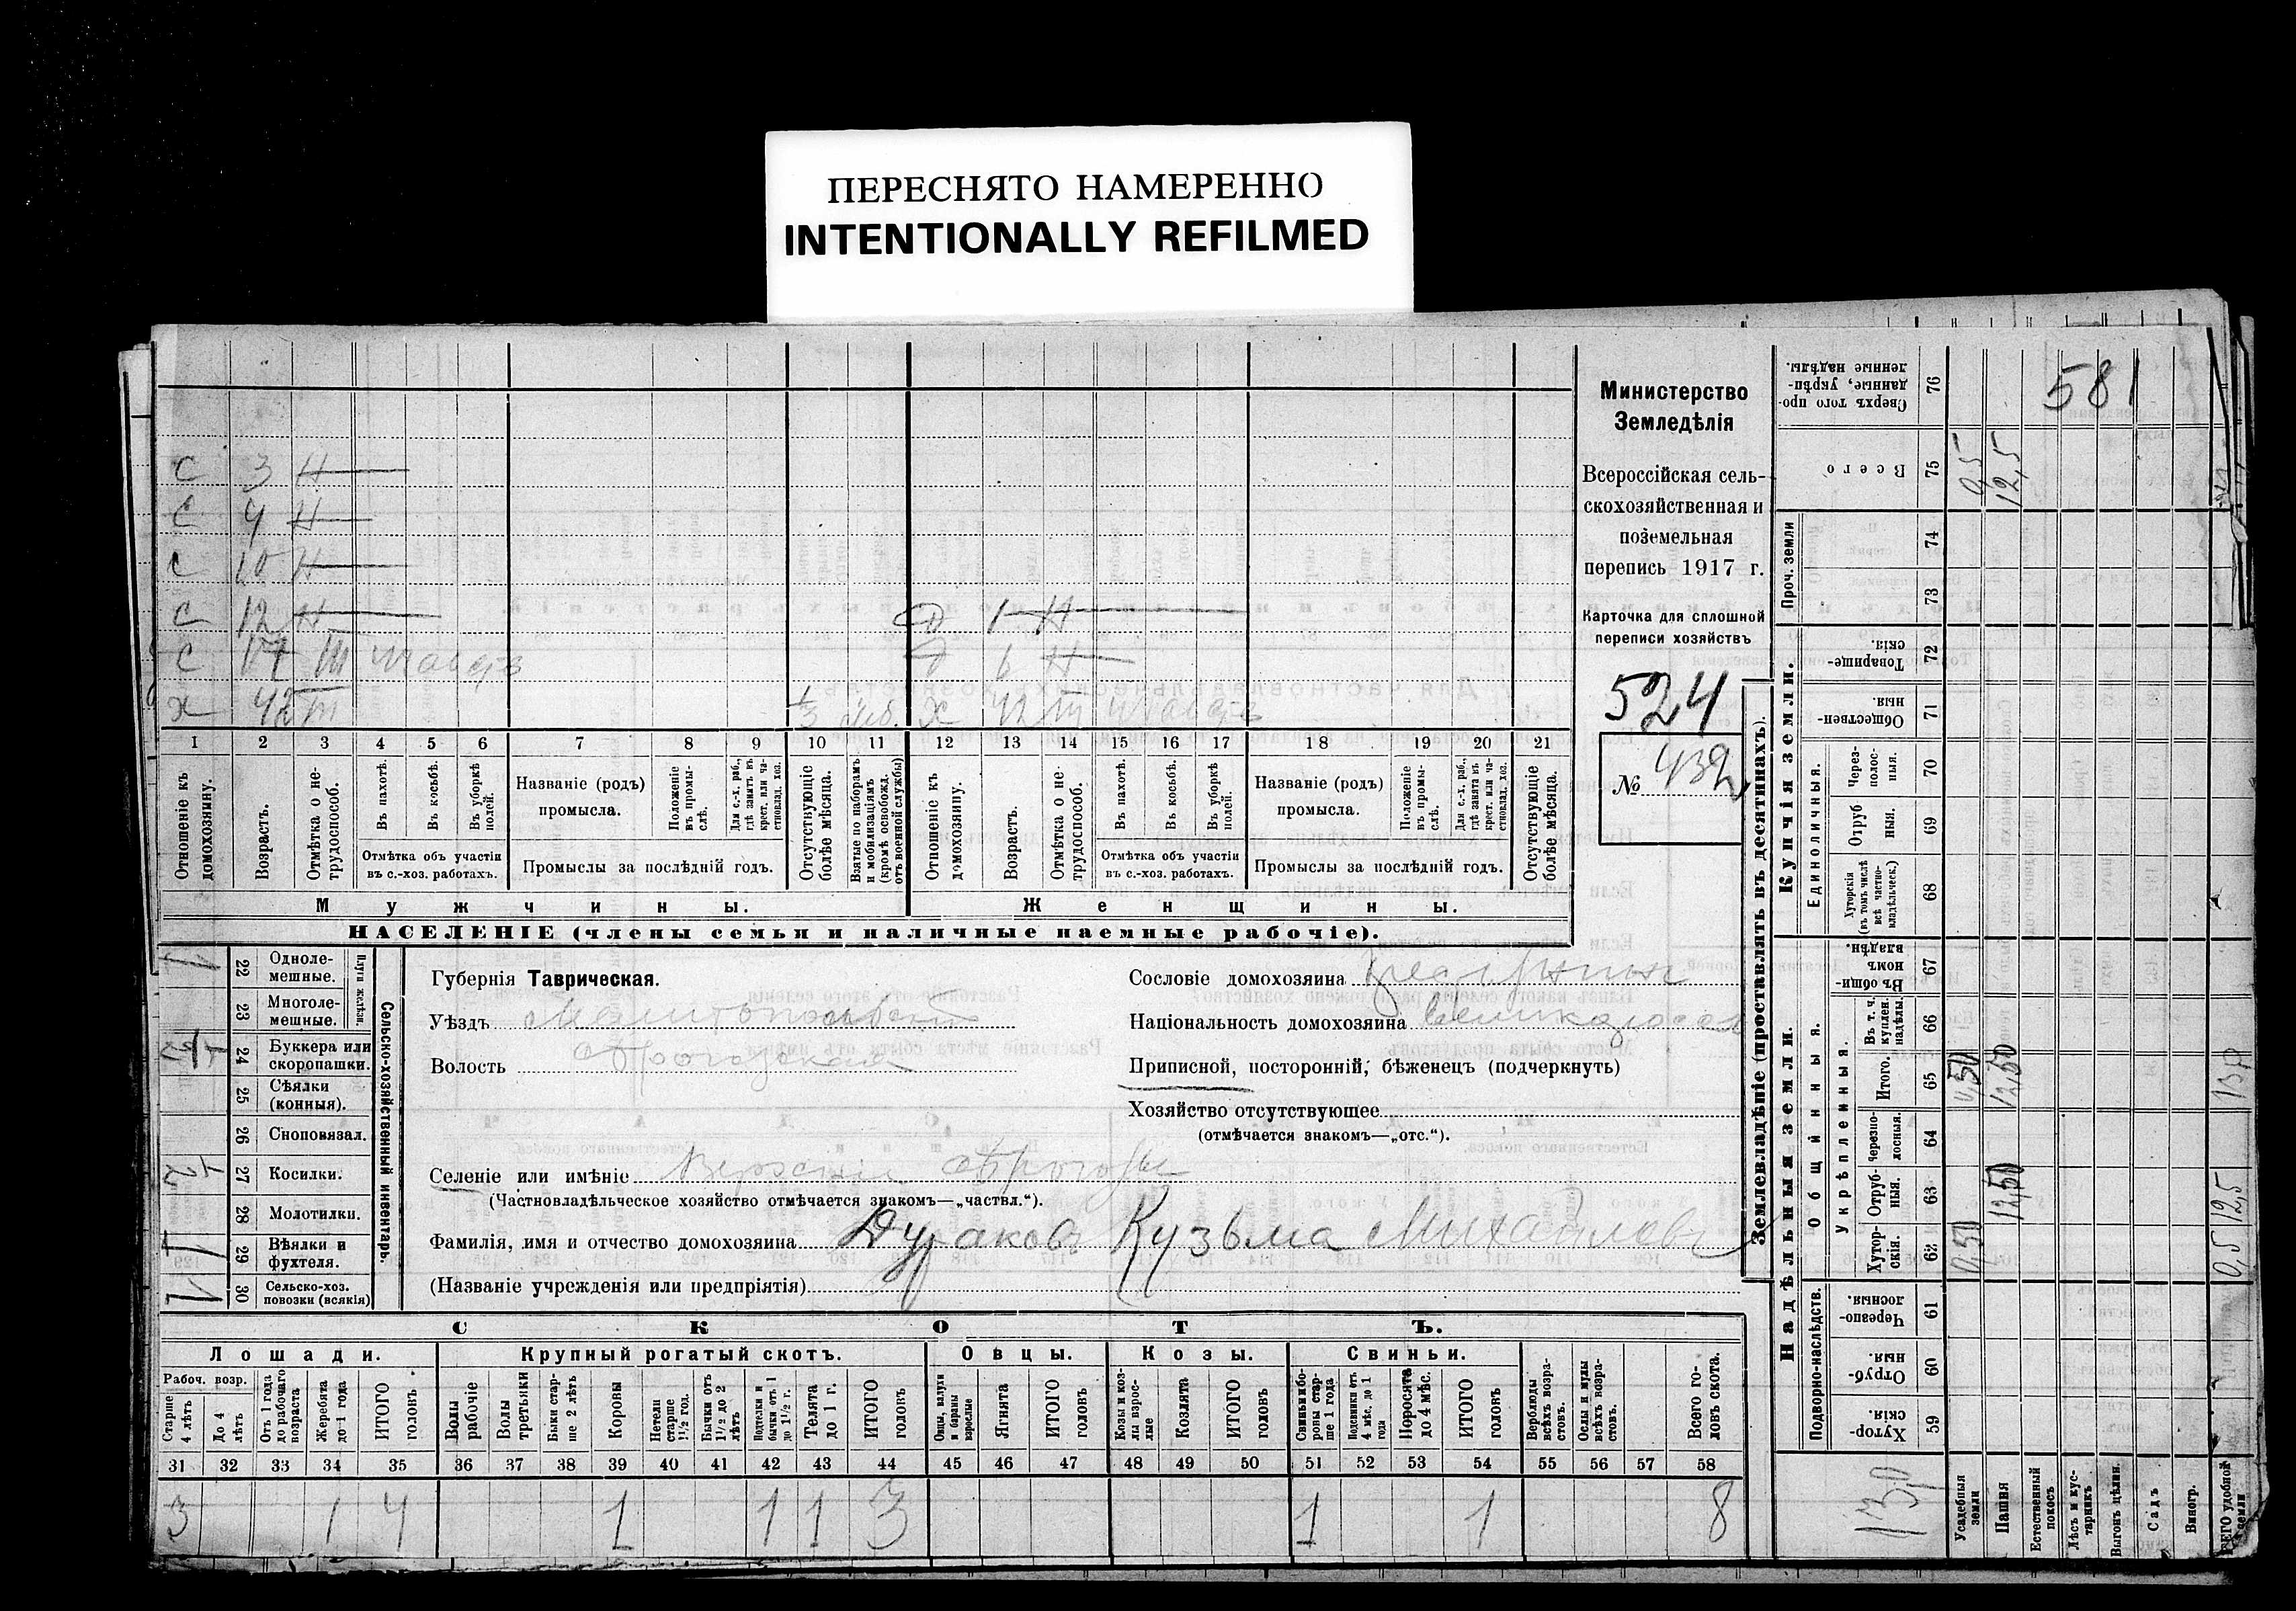 ПЕРЕСНЯТО НАМЕРЕННО
INTENTIONALLY REFILMED
С 3 Н
С 4 Н
С 10 Н
С 12 Н
Д 1 Н
С 17 Ш
Д 6 Н
Х 42 Ш
Х 42 Ш
1 2 3 4 5 6 7 8 9 10 11 12 13 14 15 16 17 18 19 20 21
Отношеніе къ домохозяину.
Возрастъ.
Отмѣтка о нетрудоспособ.
Въ пахотѣ.
Въ косьбѣ.
Въ уборкѣ полей.
Отмѣтка объ участіи въ с.-хоз. работахъ.
Названіе (родъ) промысла.
Положеніе въ промыслѣ.
Для с.-х. раб., гдѣ занятъ въ крест. или частновлад. хоз.
Промыслы за послѣдній годъ.
Отсутствующіе болѣе мѣсяца.
Взятые по наборамъ и мобилизаціямъ (кромѣ освобожд. отъ военной службы)
Отношеніе къ домохозяину.
Возрастъ.
Отмѣтка о нетрудоспособ.
Въ пахотѣ.
Въ косьбѣ.
Въ уборкѣ полей.
Отмѣтка объ участіи въ с.-хоз. работахъ.
Названіе (родъ) промысла.
Положеніе въ промыслѣ.
Для с.-х. раб., гдѣ занята въ крест. или частновлад. хоз.
Промыслы за послѣдній годъ.
Отсутствующіе болѣе мѣсяца.
Мужчины.
Женщины.
НАСЕЛЕНІЕ (члены семьи и наличные наемные рабочіе).
Министерство
Земледѣлія
Всероссійская сель-
скохозяйственная и
поземельная
перепись 1917 г.
Карточка для сплошной
переписи хозяйствъ
524
№ 432
Сельско-хозяйственный инвентарь.
Плуги желѣзн.
22 Одноле-мешные.
23 Многоле-мешные.
24 Буккера или скоропашки.
25 Сѣялки (конныя).
26 Сноповязал.
27 Косилки.
28 Молотилки.
29 Вѣялки и фухтеля.
30 Сельско-хоз. повозки (всякія)
Губернія Таврическая.
Уѣздъ Мелитопольскій
Волость
Селеніе или имѣніе
(Частновладѣльческое хозяйство отмѣчается знакомъ—„частвл.“).
Фамилія, имя и отчество домохозяина Дураковъ Кузьма Михайловъ
(Названіе учрежденія или предпріятія)
Сословіе домохозяина
Національность домохозяина
Приписной, посторонній, бѣженецъ (подчеркнуть)
Хозяйство отсутствующее
(отмѣчается знакомъ—„отс.“).
СКОТЪ.
Лошади.
Крупный рогатый скотъ.
Овцы.
Козы.
Свиньи.
Рабоч. возр.
Старше 4 лѣтъ
До 4 лѣтъ
Отъ 1 года до рабочаго возраста
Жеребята до 1 года
ИТОГО головъ
Волы рабочіе
Волы третьяки
Быки старше 2 лѣтъ
Коровы
Нетели старше 1½ год.
Бычки отъ 1½ до 2 лѣтъ
Подтелки и бычки отъ 1 до 1½ г.
Телята до 1 г.
ИТОГО головъ
Овцы, валухи и бараны взрослые
Ягнята
ИТОГО головъ
Козы и козлы взрослые
Козлята
ИТОГО головъ
Свиньи и боровы старше 1 года
Подсвинки отъ 4 мѣс. до 1 года
Поросята до 4 мѣс.
ИТОГО головъ
Верблюды всѣхъ возрастовъ.
Ослы и мулы всѣхъ возрастовъ.
Всего головъ скота.
31 32 33 34 35 36 37 38 39 40 41 42 43 44 45 46 47 48 49 50 51 52 53 54 55 56 57 58
3 1 4 1 1 1 3 1 1 8
Землевладѣніе (проставлять въ десятинахъ).
Надѣльныя земли.
Купчія земли.
Проч. земли
Подворно-наслѣдств.
Общинныя.
Укрѣпленныя.
Единоличныя.
Сверхъ того проданные, укрѣпленные надѣлы. 76
Всего 75
74
73
Товарищескія 72
Общественныя 71
Черезполосныя. 70
Отрубныя. 69
Хуторскія (въ томъ числѣ всѣ частновладѣльческ.) 68
Въ общинномъ владѣн. 67
Въ т. ч. куплен. надѣлы. 66
Итого. 65
Черезполосныя. 64
Отрубныя. 63
Хуторскія. 62
Черезполосныя. 61
Отрубныя 60
Хуторскія 59
581
0,5
12,5
0,50
12,50
12,50
0,50
0,5 12,5
13,0
13,0
Усадебныя земли
Пашня
Естественный покосъ
Лѣсъ и кустарникъ
Выгонъ цѣлин.
Садъ
Виногр.
ВСЕГО удобной земли